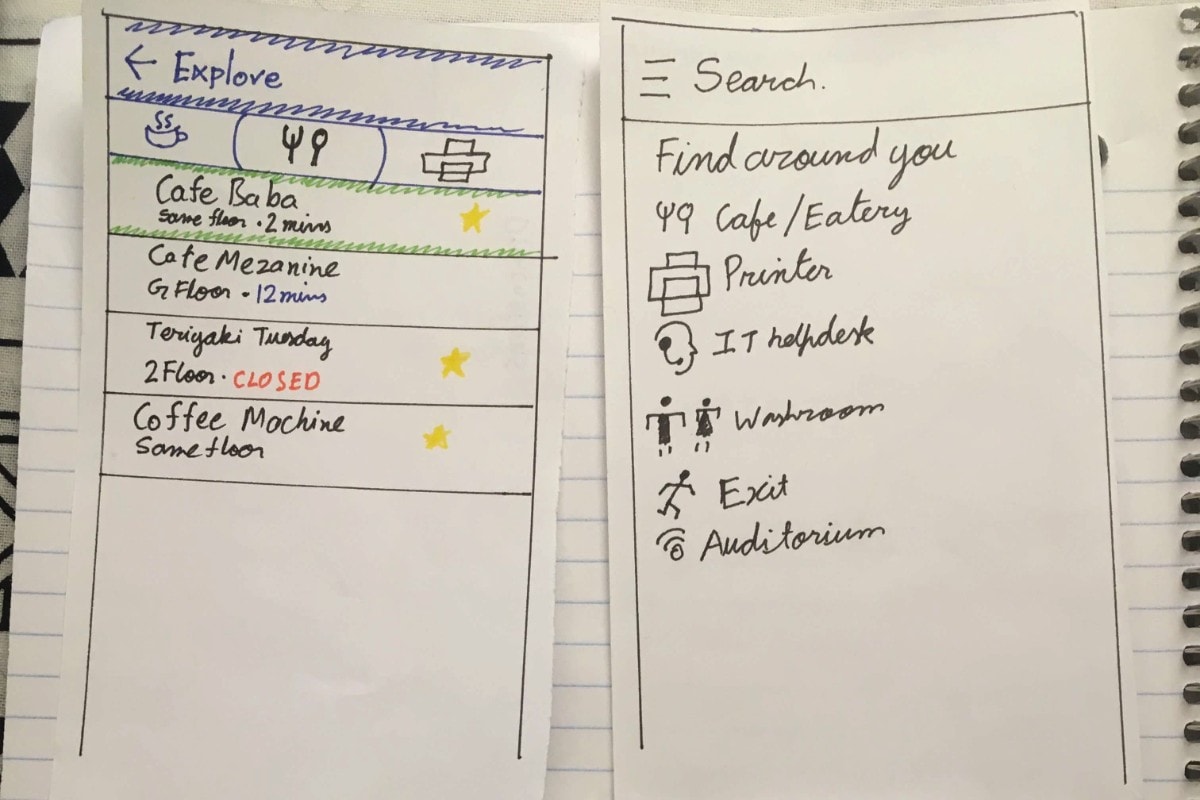 Explore
Cafe Baba
Same floor · 2 mins
Cafe Mezanine
G Floor · 12 mins
Teriyaki Tuesday
2 Floor · CLOSED
Coffee Machine
Same floor
Search.
Find around you
Cafe/Eatery
Printer
IT helpdesk
Washroom
Exit
Auditorium